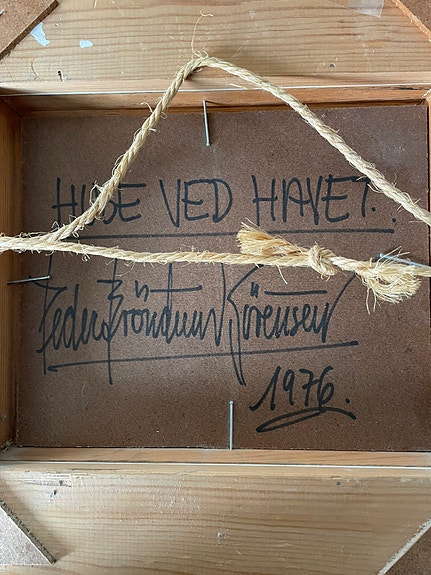 HUSE VED HAVET.
Peder Bröndum Sörensen
1976.